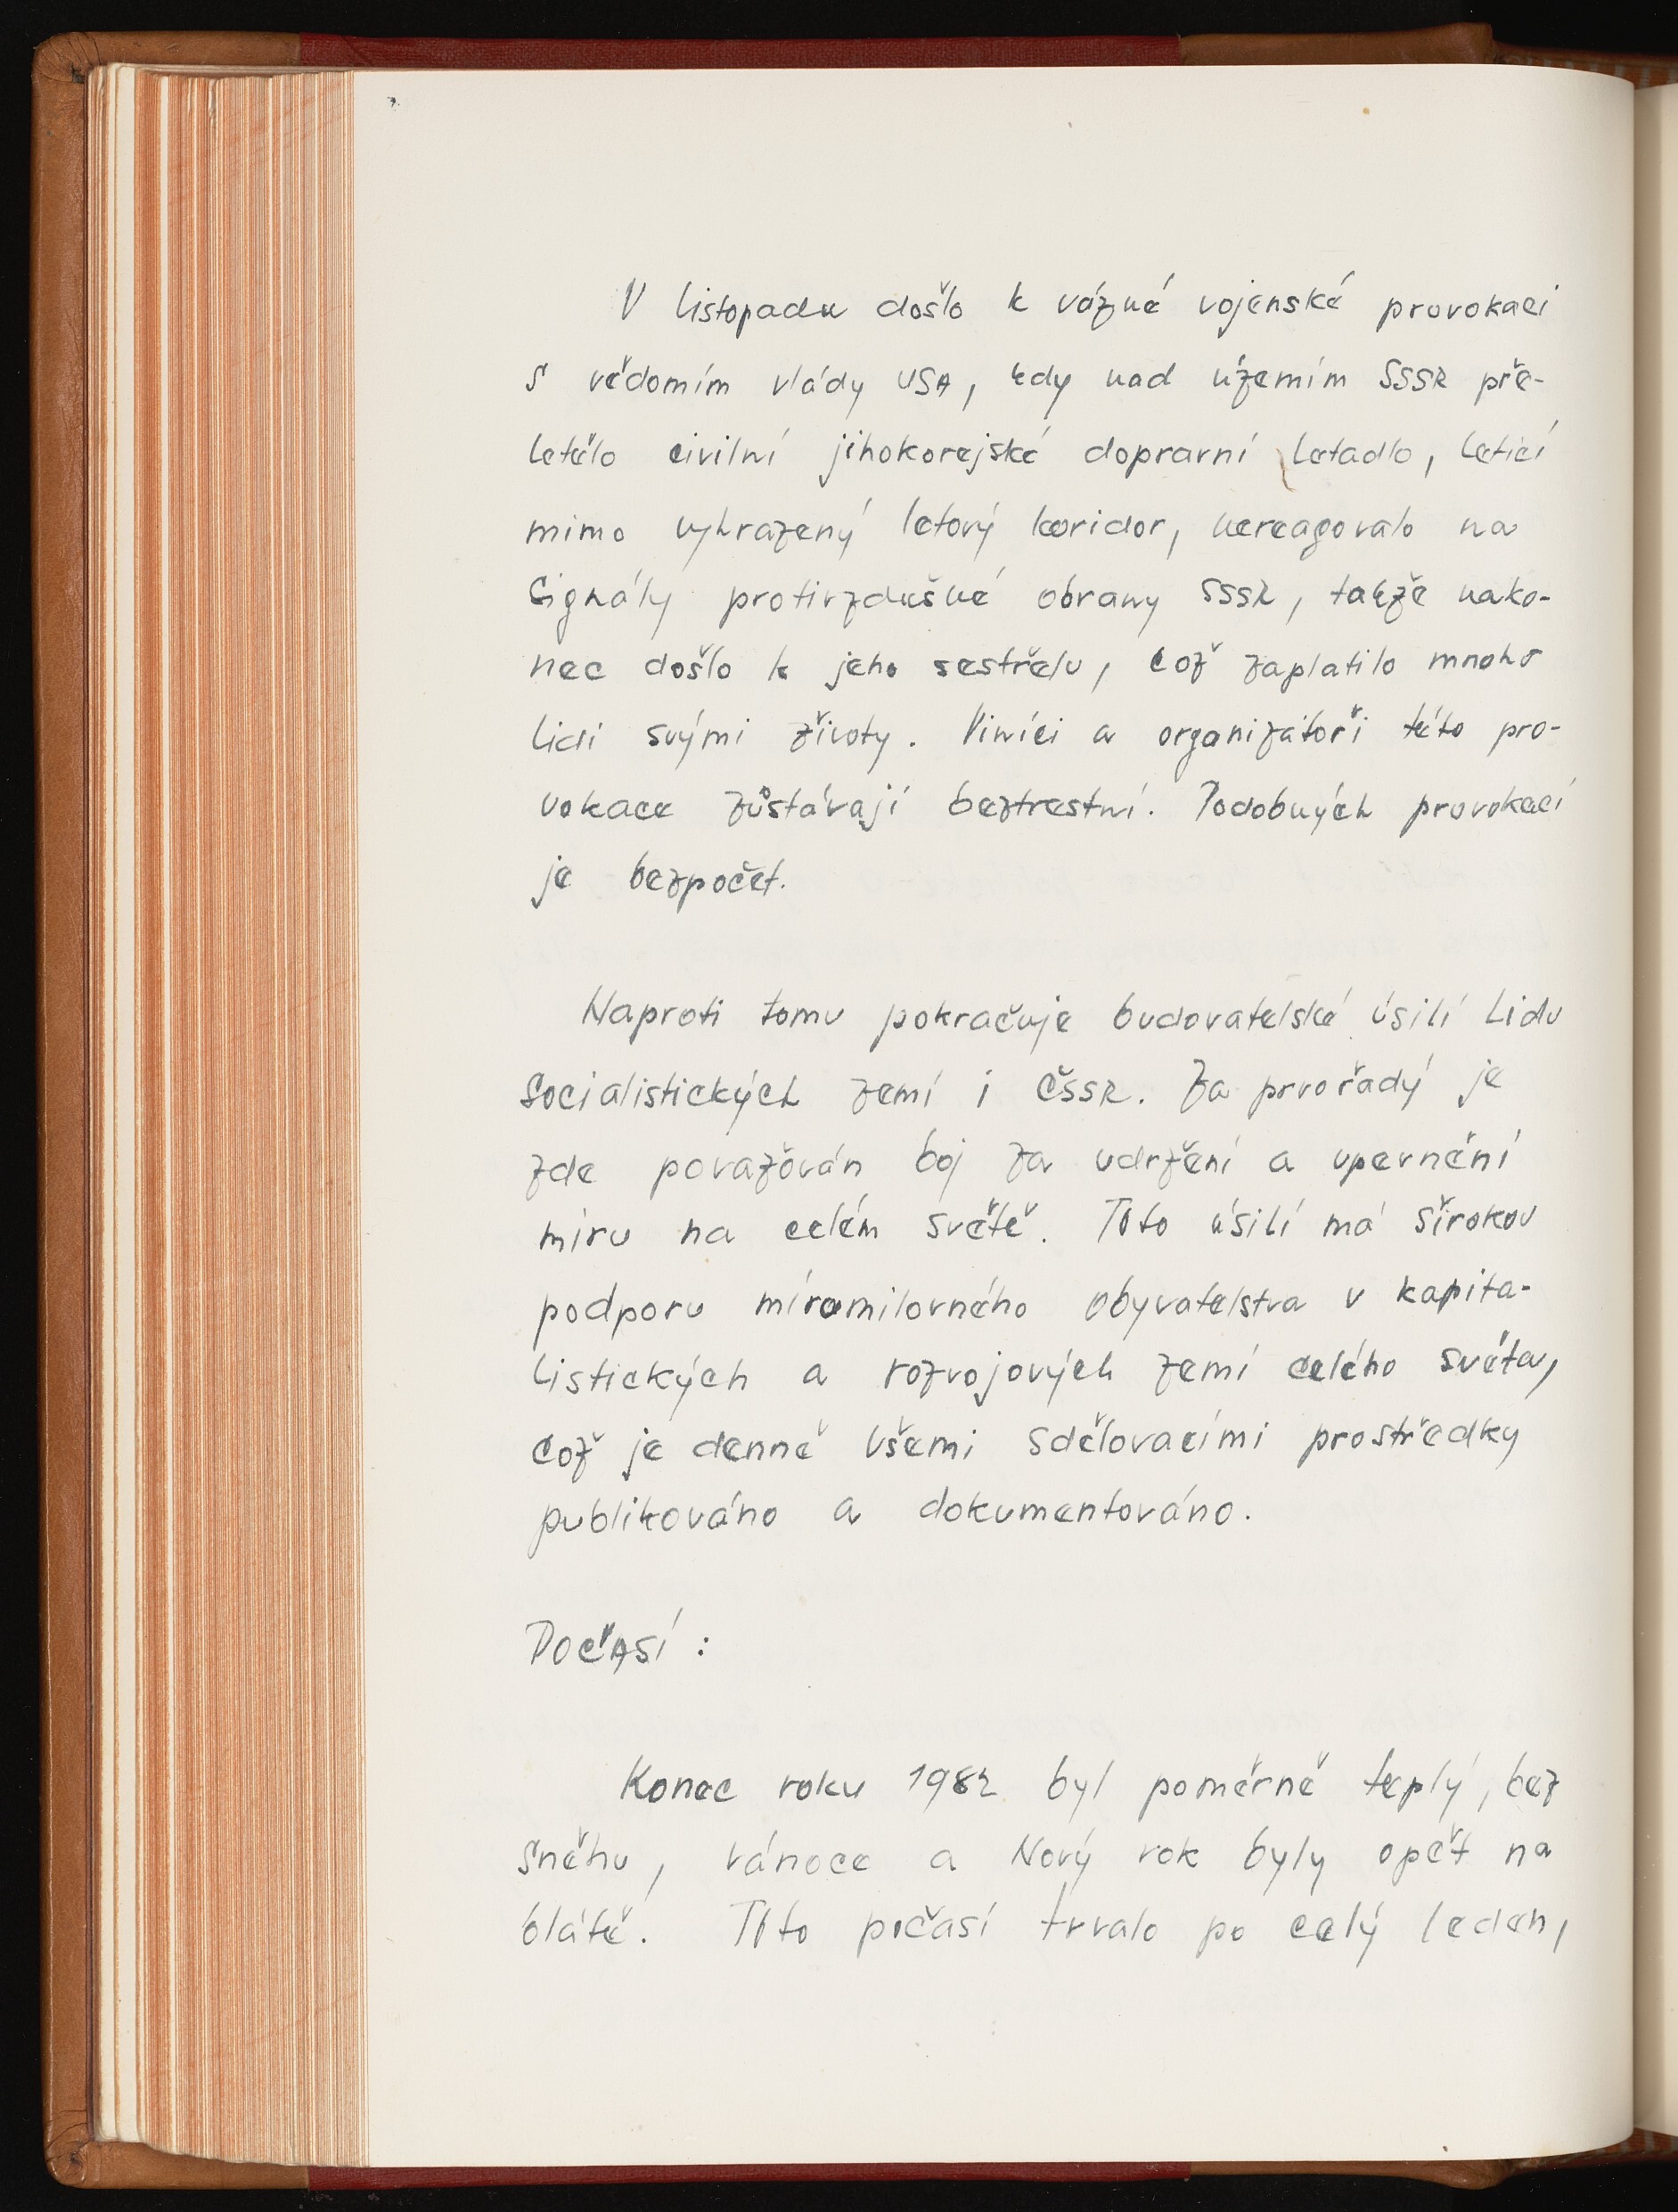 V listopadu došlo k vázné vojenské provokaci
s vědomím vlády USA, kdy nad územím SSSR pře-
letělo civilní jihokorejské dopravní letadlo, letící
mimo vyhrazený letový koridor, nereagovalo na
signály protivzdušné obrany SSSR, takže nako-
nec došlo k jeho sestřelu, což zaplatilo mnoho
lidí svými životy. Viníci a organizátoři této pro-
vokace zůstávají beztrestní. Podobných provokací
je bezpočet.
Naproti tomu pokračuje budovatelské úsilí lidu
socialistických zemí i ČSSR. Za prvořadý je
zde považován boj za udržení a upevnění
míru na celém světě. Toto úsilí má širokou
podporu míramilovného obyvatelstva v kapita-
listických a rozvojových zemí celého světa,
což je denně všemi sdělovacími prostředky
publikováno a dokumentováno.
Počasí :
Konec roku 1982 byl poměrně teplý, bez
sněhu, vánoce a Nový rok byly opět na
blátě. Toto počasí trvalo po celý leden,